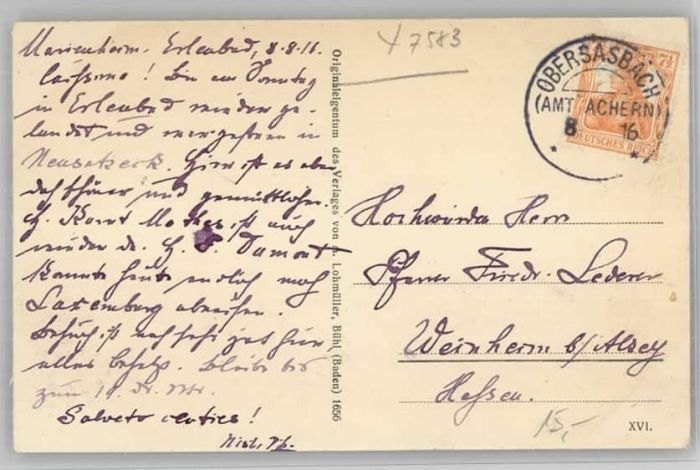 Marienheim - Erlenbad, 8.8.16.
Carissimo! Bin am Sonntag
in Erlenbad wieder ge-
landet und vorgestern in
Neusatzeck. Hier ist es aber
doch schöner und gemüthlicher.
H. ist auch
wieder da. H. P. Dumont
konnte heute endlich nach
Luxemburg abreisen.
Besuch ist noch sehr gut hier
alles besetzt. Bleibe bis
zum 19. ds. Mts.
Salveto centies!
Originaleigentum des Verlages von Lohmüller, Bühl (Baden) 1656
Y 7583
OBERSASBACH
(AMT ACHERN)
8 16
7½
DEUTSCHES REICH
Hochwürden Herr
Pfarrer Friedr. Lederer
Weinheim b/Alzey
Hessen.
15,-
XVI.